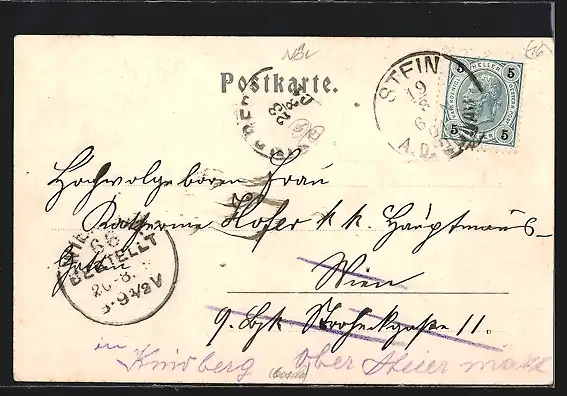 Növ
Postkarte.
STEIN
19
8
A.D.
5 HELLER 5
5 5
23
8
Hochwolgeboren Frau
Katherine Hofer k. k. Hauptmanns-
Gattin
Wien
9. Bzk 11.
WIEN
66
BESTELLT
20.8.
8·9½V
in Kindberg Ober Steier mark